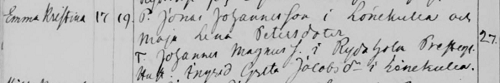 Emma Kristina 17. 19. F. Jonas Johannesson i Lönekulla och
Maja Lena Petersdoter
T. Johannes Magnus J. i Rydahola 27.
Hust. Ingrid Greta Jacobsd. i Lönekulla.